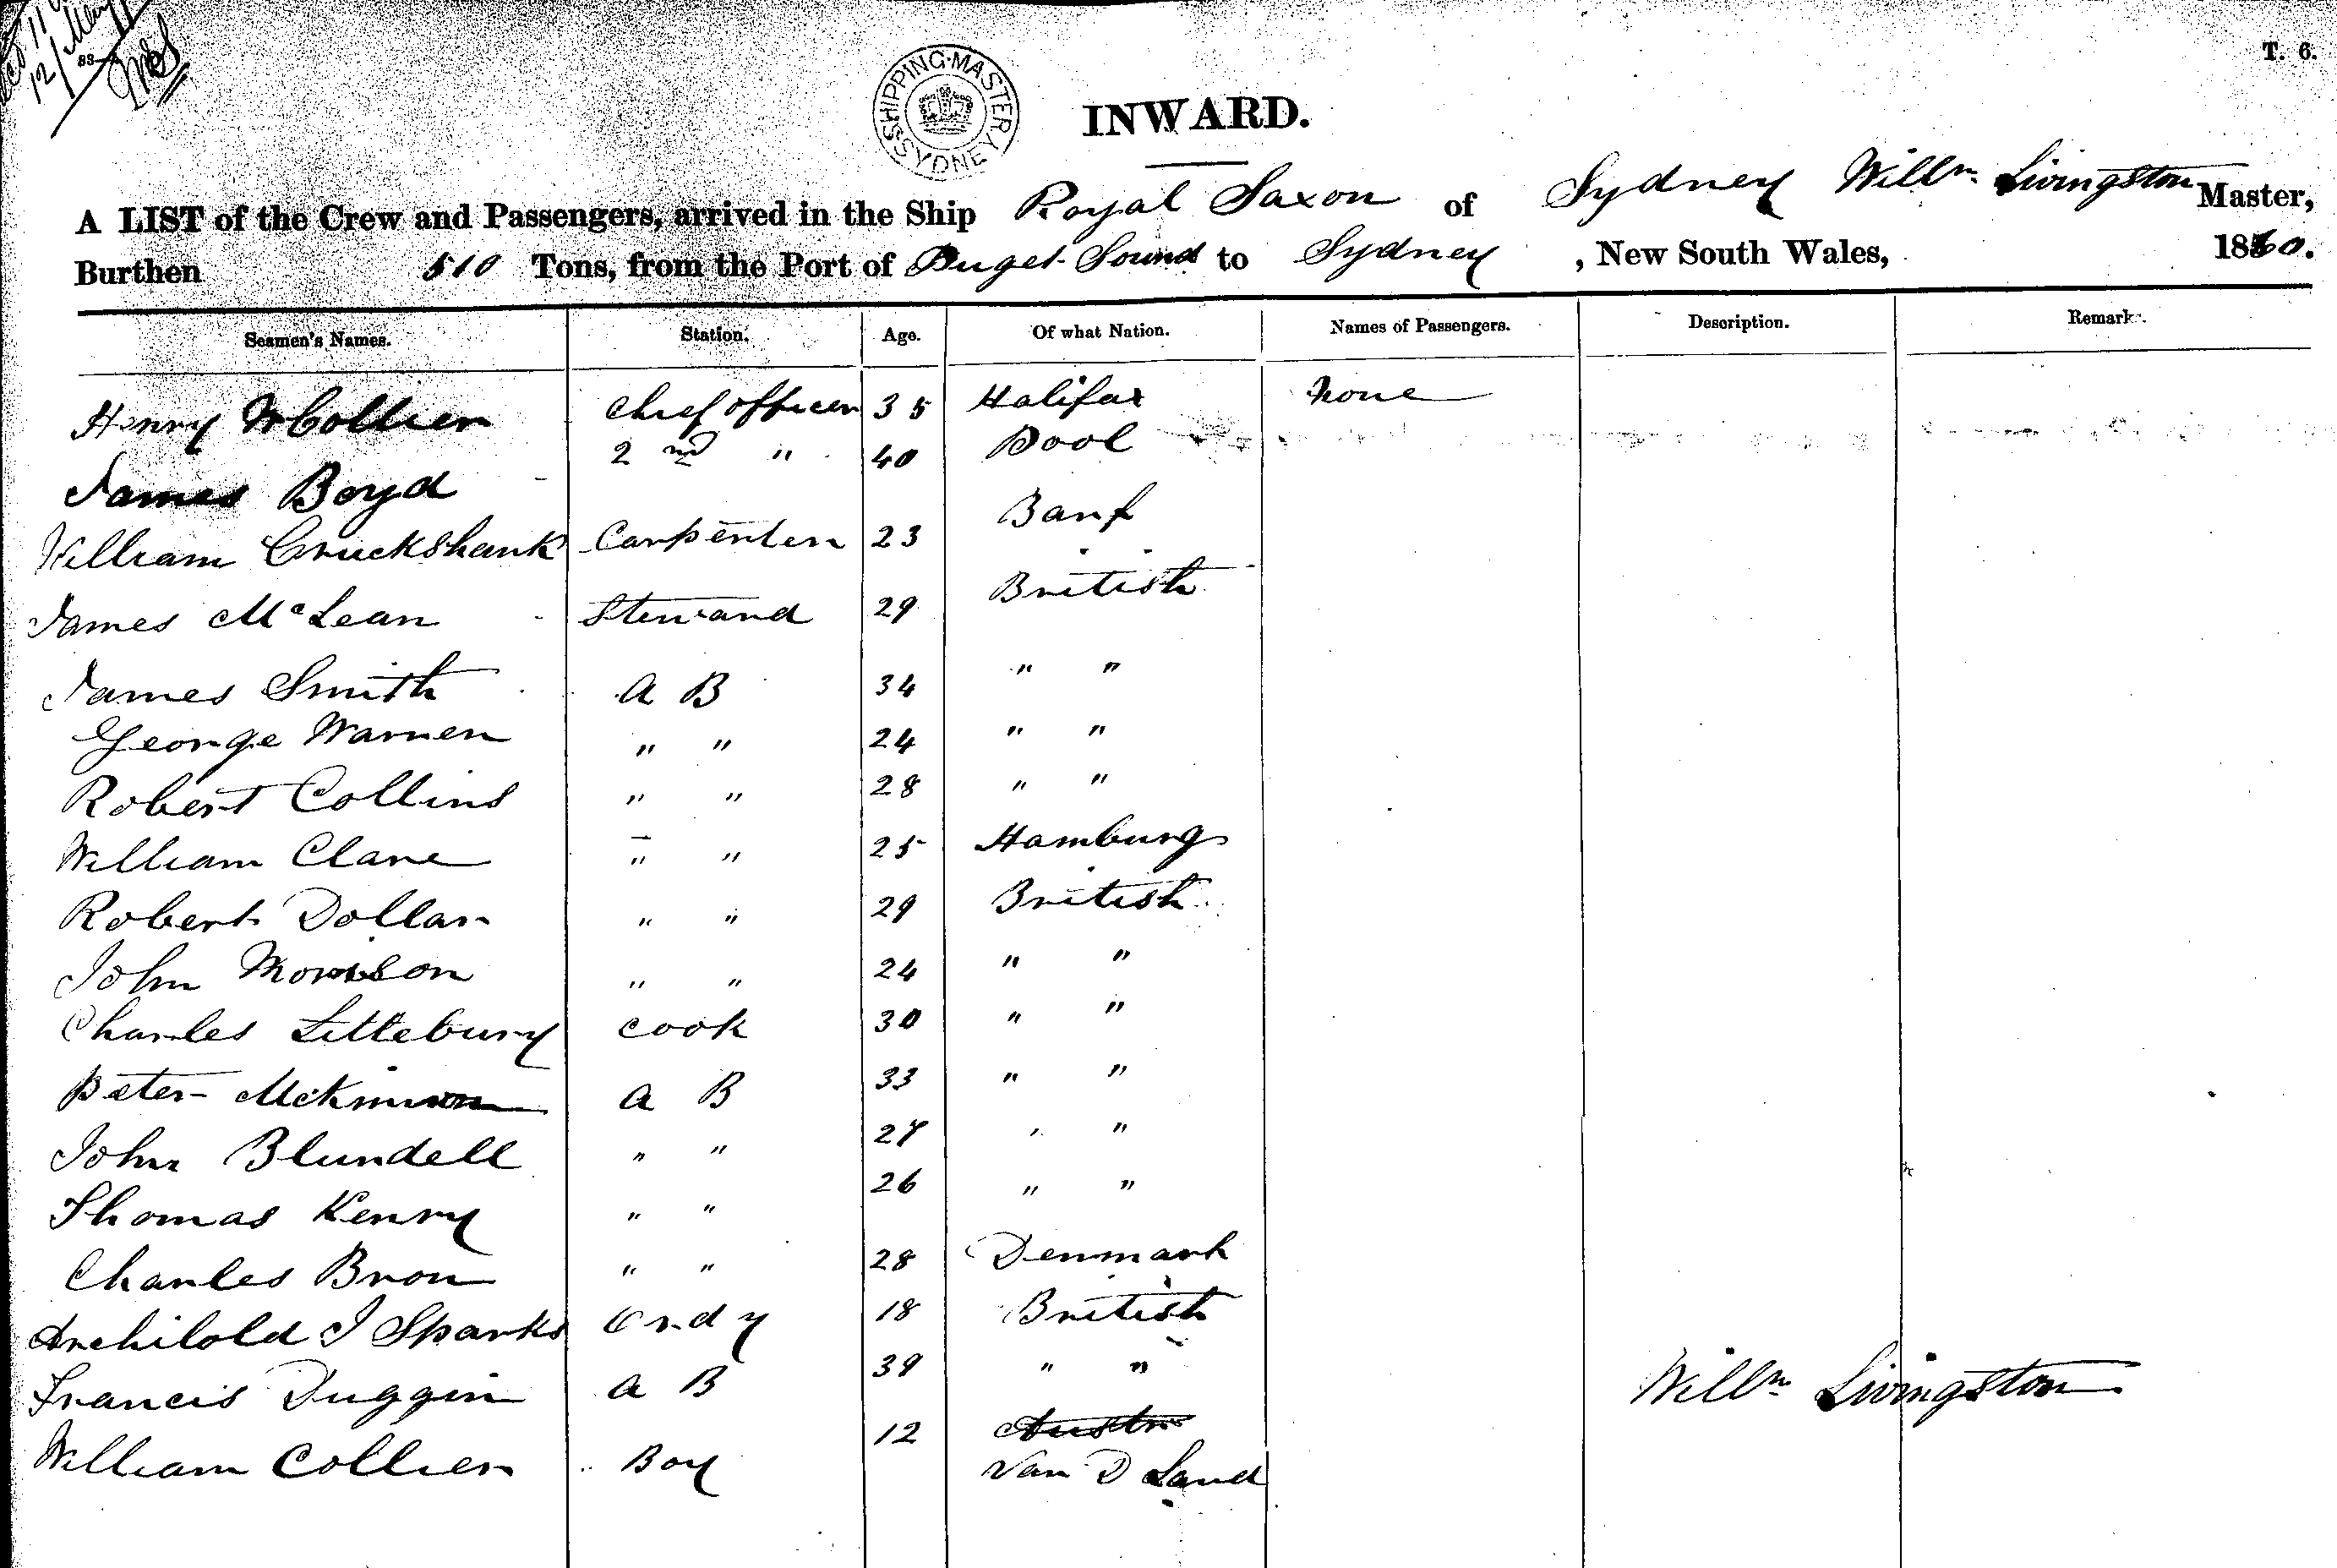 12/May
T. 6.
SHIPPING·MASTER SYDNEY
INWARD.
A LIST of the Crew and Passengers, arrived in the Ship Royal Saxon of Sydney Willm Livingston Master,
Burthen 510 Tons, from the Port of Puget Sound to Sydney, New South Wales, 1860.
Seamen's Names. Station. Age. Of what Nation. Names of Passengers. Description. Remarks.
Henry W Collier Chief officer 35 Halifax None
James Boyd 2nd " 40 Pool
William Cruckshank Carpenter 23 Banf
James McLean Steward 29 British
James Smith A B 34 " "
George Warner " " 24 " "
Robert Collins " " 28 " "
William Clare " " 25 Hamburg
Robert Dollar " " 29 British
John Morrison " " 24 " "
Charles Littebury Cook 30 " "
Peter McKinnon A B 33 " "
John Blundell " " 27 " "
Thomas Kenry " " 26 " "
Charles Bron " " 28 Denmark
Archilold J Sparks Ordy 18 British
Francis Duggin A B 39 " "
Willm Livingston
William Collier Boy 12 Austr
Van D Land